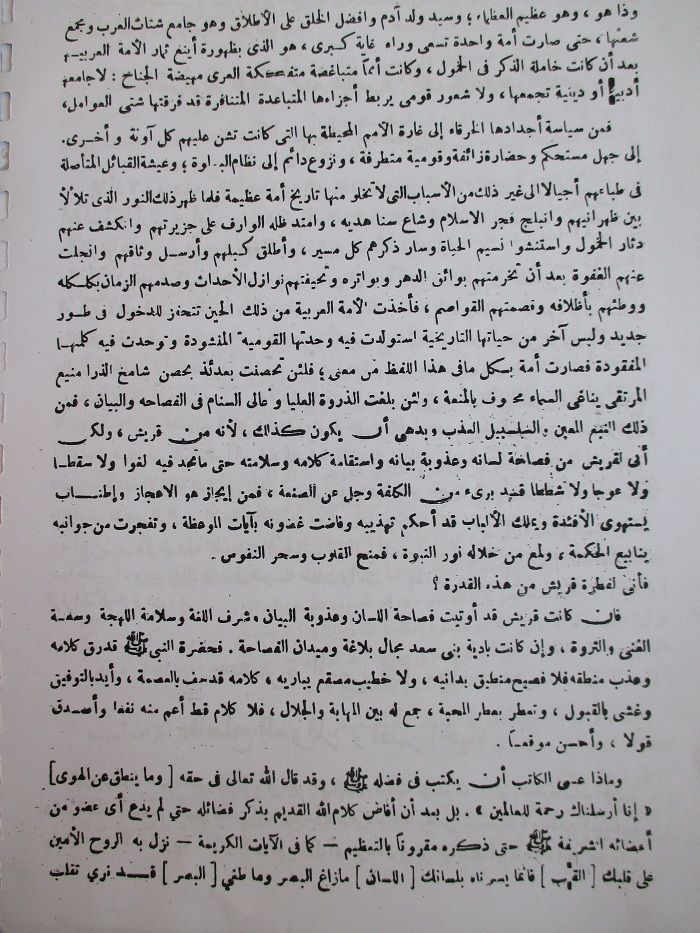 وذا هو ، وهو عظيم العظماء ؛ وسيد ولد آدم وافضل الخلق على الأطلاق وهو جامع شتات العرب ومجمع
شعثها ، حتى صارت أمة واحدة تسعى وراء غاية كبرى ، هو الذى بظهورة أينع ثمار الأمة العربيـة
بعد أن كانت خاملة الذكر فى الخمول ، وكانت أمماً متباغضة متفككة العرى مهيضة الجناح : لا جامعة
أدبية أو دينية تجمعها ، ولا شعور قومى يربط أجزاءها المتباعدة المتنافرة قد فرقتها شتى العوامل ،
فمن سياسة أجدادها الخرقاء إلى غارة الأمم المحيطة بها التى كانت تشن عليهم كل آونة و أخـرى .
إلى جهل مستحكم وحضارة زائفة وقومية متطرفة ، ونزوع دائم إلى نظام البداوة ؛ وعيشة القبائل المتأصلة
فى طباعهم أجيالا الى غير ذلك من الأسباب التى لا تخلو منها تاريخ أمة عظيمة فلما ظهر ذلك النور الذى تلألأ
بين ظهرانيهم وانبلج فجر الاسلام وشاع سنا هديه ، وامتد ظله الوارف على جزيرتهم وانكشف عنهم
دثار الخمول واستنشوا نسيم الحياة وسار ذكرهم كل مسير ، وأطلق كبلهم وأرسـل وثاقهم وانجلت
عنهم الغفوة بعد أن تخرمتهم بوائق الدهر وبواتره وتحيفتهم نوازل الأحداث وصدمهم الزمان بكلكله
ووطئهم بأظلافه وفصمتهم القواصم ، فأخذت الأمة العربية من ذلك الحين تتحفز للدخول فى طـور
جديد ولبس آخر من حياتها التاريخية استولدت فيه وحدتها القومية المنشودة وتوحدت فيه كلمتهـا
المفقودة فصارت أمة بسكل مافى هذا اللفظ من معنى ؛ فلئن تحصنت بعدئذ بحصن شامخ الذرا منيع
المرتقى يناغى السماء محفوف بالمنعة ، ولئن بلغت الذروة العليا وعالى السنام فى الفصاحه والبيان ، فمن
ذلك النبع المعين والسلسبيل العذب وبدهى أن يكون كذلك ، لأنه من قريش ، ولكن
أنى لقريش من فصاحة لسانه وعذوبة بيانه واستقامة كلامه وسلامته حتى ماتجد فيه لغوا ولا سقطـا
ولا عوجا ولا شططا فهيد برىء مـن الكلفة وجل عن الصنعة ، فمن إيجاز هو الاعجاز وإطنـاب
يستهوى الأفئدة ويملك الألباب قد أحكم تهذيبه وفاضت غضونه بآيات الموعظة ، وتفجرت من جوانبه
ينابيع الحكمة ، ولمع من خلاله نور النبوة ، فمنح القلوب وسحر النفوس .
فأنى لفطرة قريش من هذه القدرة ؟
فان كانت قريش قد أوتيت فصاحة اللسان وعذوبة البيان وشرف اللغة وسلامة اللهجة وسعـة
الغنى والثروة ، وإن كانت بادية بنى سعد مجال بلاغة وميدان الفصاحة . فحضرة النبى ﷺ قدرق كلامه
وعذب منطقه فلا فصيح منطيق يدانيه ، ولا خطيب مصقع يباريه ، كلامه قد حف بالعصمة ، وأيد بالتوفيق
وغشى بالقبول ، وتعطر بعطر المحبة ، جمع له بين المهابة والجلال ، فلا كلام قط أعم منه نفعا وأصـدق
قولا ، وأحسن موقعـاً .
وماذا عسى الكاتب أن يكتب فى فضله ﷺ ، وقد قال الله تعالى فى حقه [ وما ينطق عن الهوى ]
« إنا أرسلناك رحمة للعالمين » . بل بعد أن أفاض كلام الله القديم بذكر فضائله حتى لم يدع أى عضو من
أعضائه الشريفة ﷺ حتى ذكره مقروناً بالتعظيم — كما فى الآيات الكريمة — نزل به الروح الأمين
على قلبك [ القلب ] فانما يسرناه بلسانك [ اللسان ] مازاغ البصر وما طغي [ البصر ] قـد نري تقلب